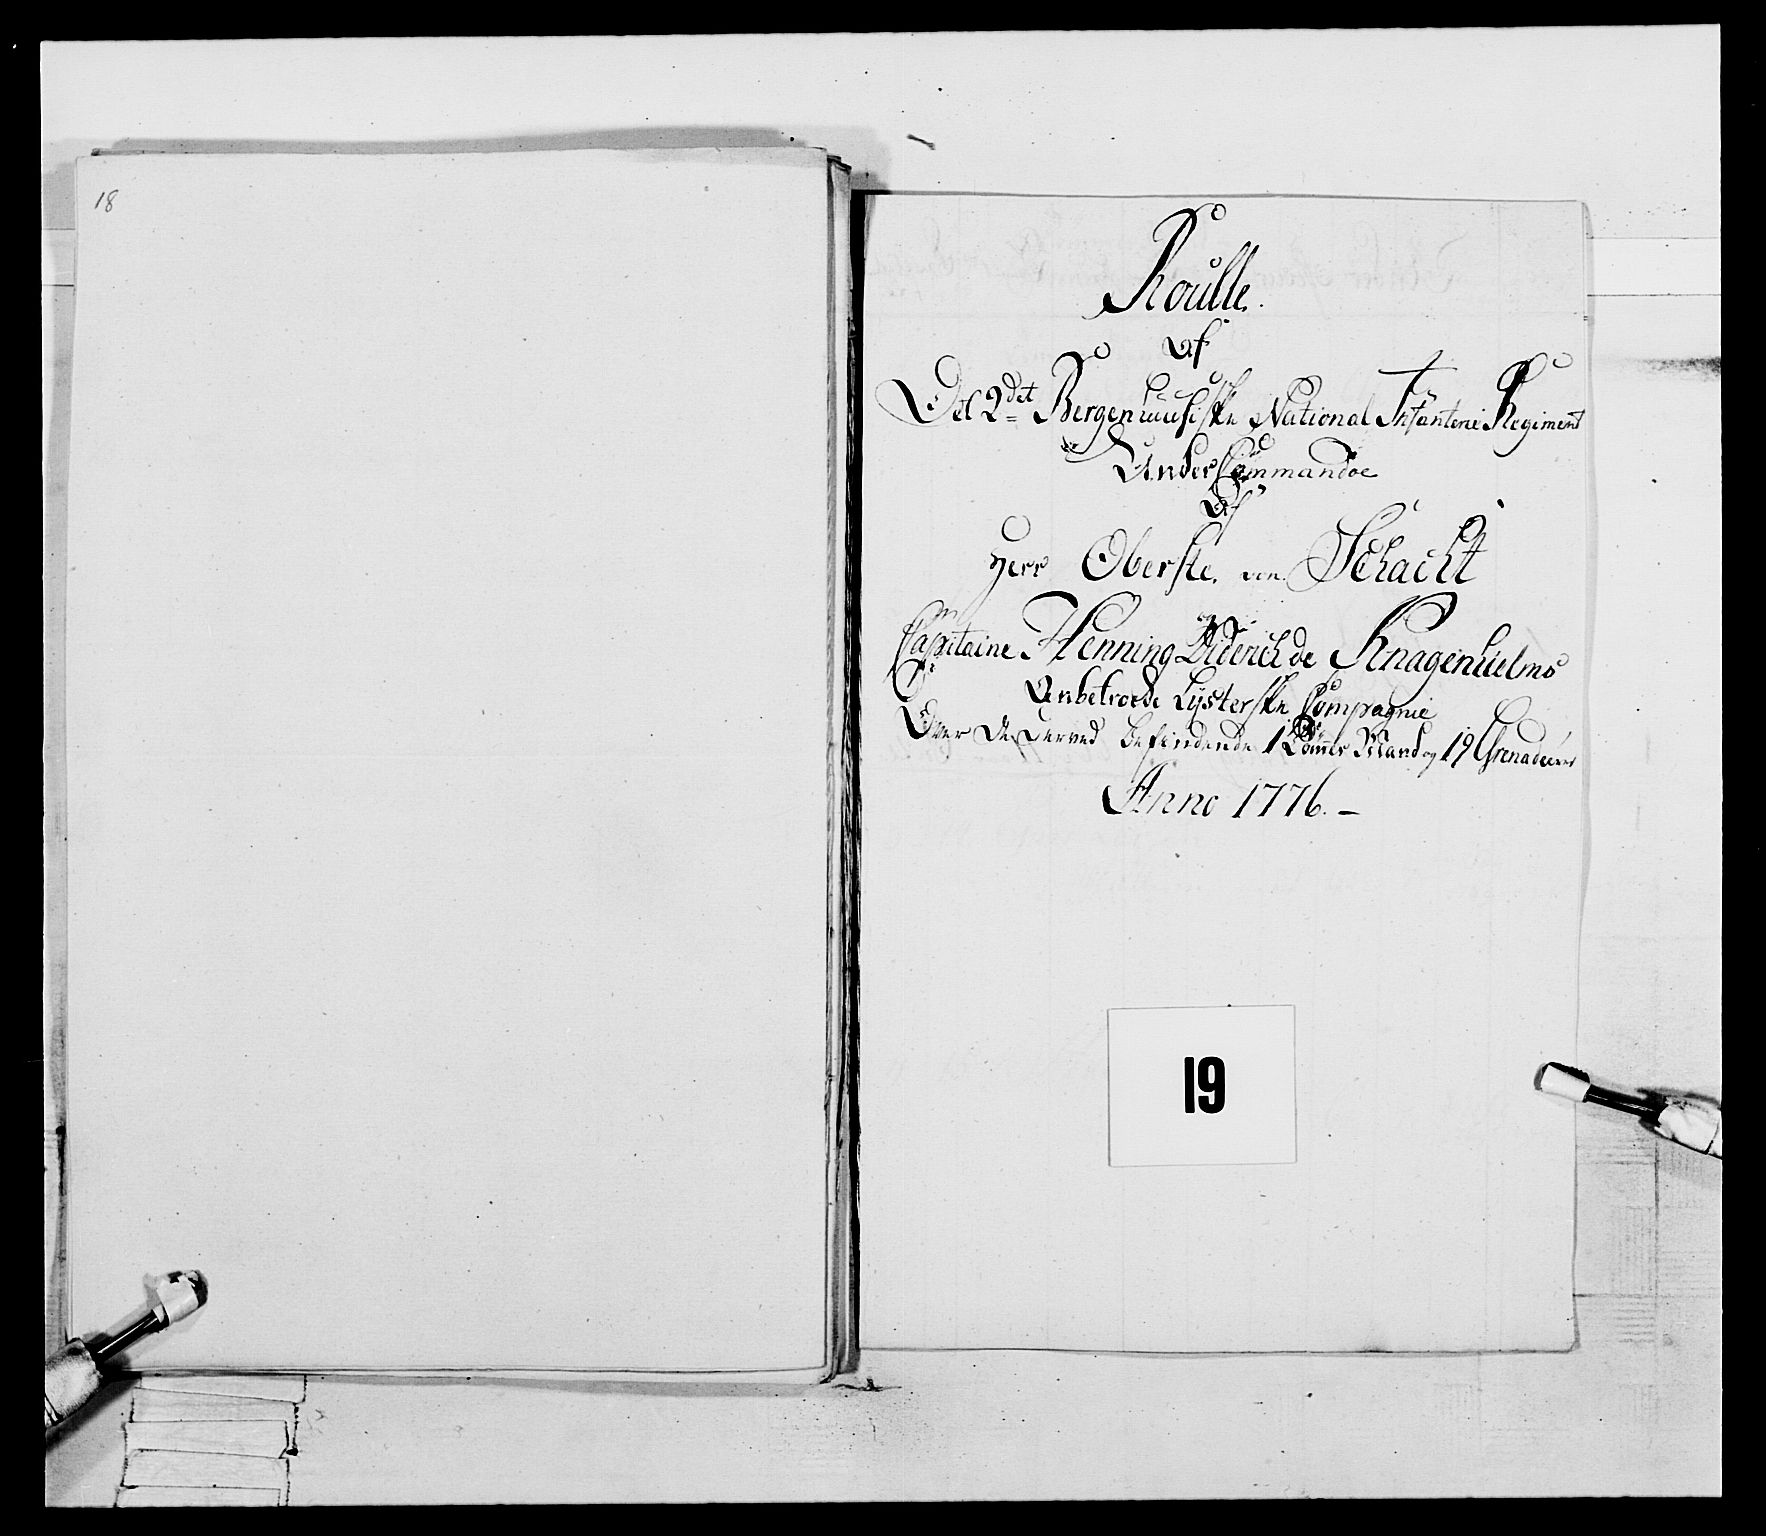 18
Roulle.
Af
Det 2det Bergenhusiske National Infanterie Regiment
Under Commandoe
Af
Herr Oberste von Schacht
Capitaine Henning Diderich de Knagenhielms
Anbetroede Lysterske Compagnie
Over de derved befindende 1 Mand og 19 Grenadeerer
Anno 1776. –
19